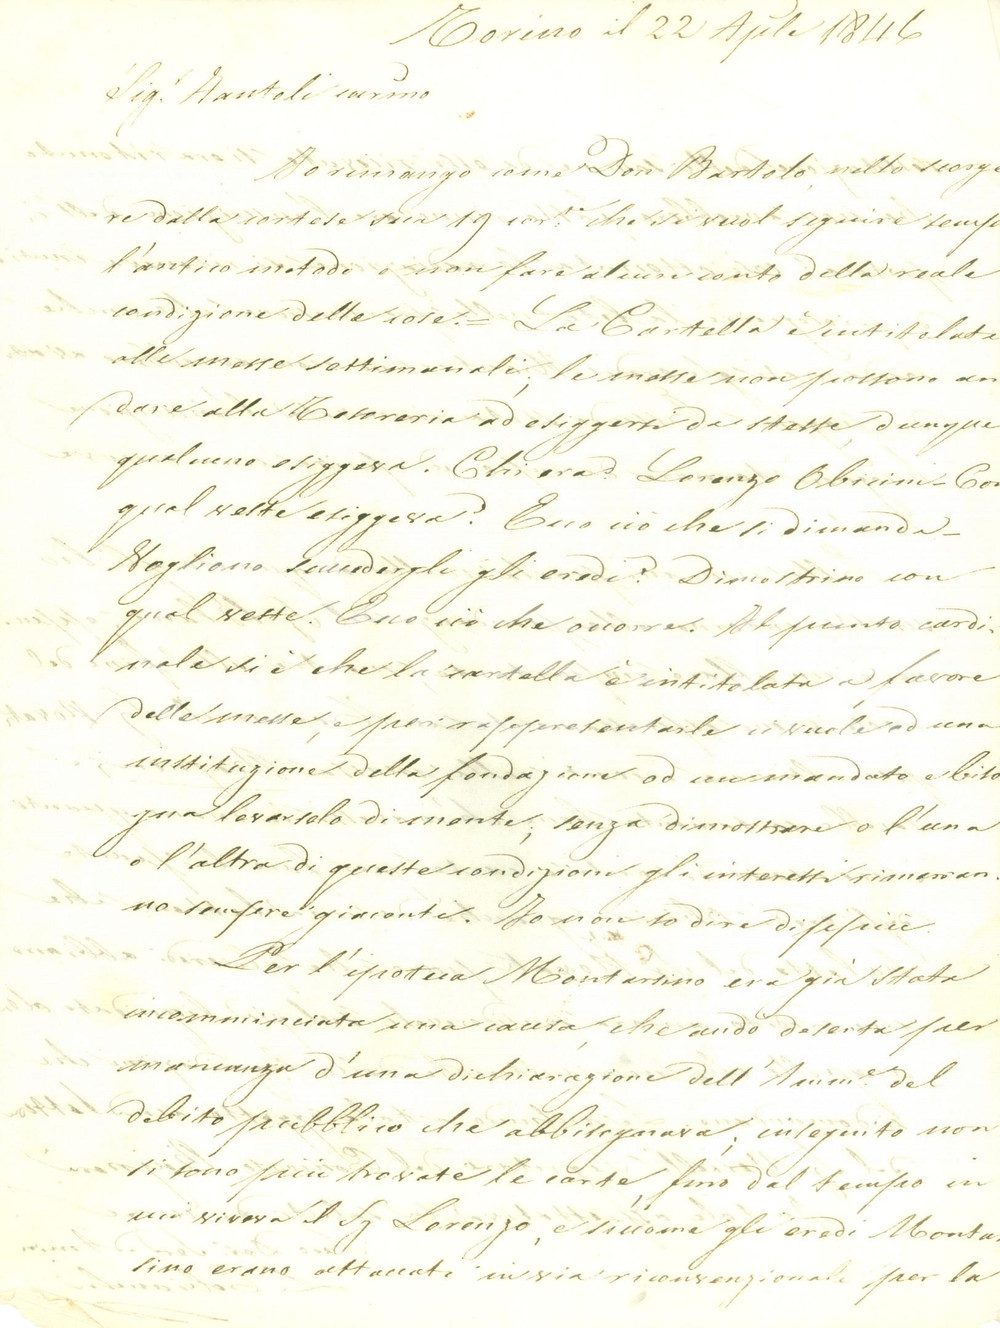 Torino il 22 Aple 1846
Sig.r Nantoli carmo
Io rimango come Don Bartolo, nello scorge
re dalla cortese sua 19 cor.te che si vuol seguire semp
l'antico metodo e non fare alcun conto della reale
condizione delle cose.= La Cartella è intitolata
alle messe settimanali; le messe non possono an
dare alla Tesoreria ad esiggersi da stesse, dunque
qualcuno esiggeva. Chi era? Lorenzo Obicini- Con
qual veste esiggeva? Ecco ciò che si dimanda-
Vogliono succedergli gli eredi? Dimostrino con
qual veste. Ecco ciò che occorre. Il punto cardi-
nale si è che la cartella è intitolata a favore
delle messe, e per rappresentarle ci vuole od una
instituzione della fondazione od un mandato e biso
gna levarselo di mente; senza dimostrare o l'una
o l'altra di queste condizioni gli interessi rimarran-
no sempre giacenti. Io non so dire di più.
Per l'ipoteca Montarsino era già stata
incomminciata una causa, che andò deserta per
mancanza d'una dichiarazione dell'Amm.e del
debito pubblico che abbisognava; inseguito non
si sono più trovate le carte, fino dal tempo in
cui viveva il Sg Lorenzo, e siccome gli eredi Montar
sino erano attaccati in via riconvenzionale per la